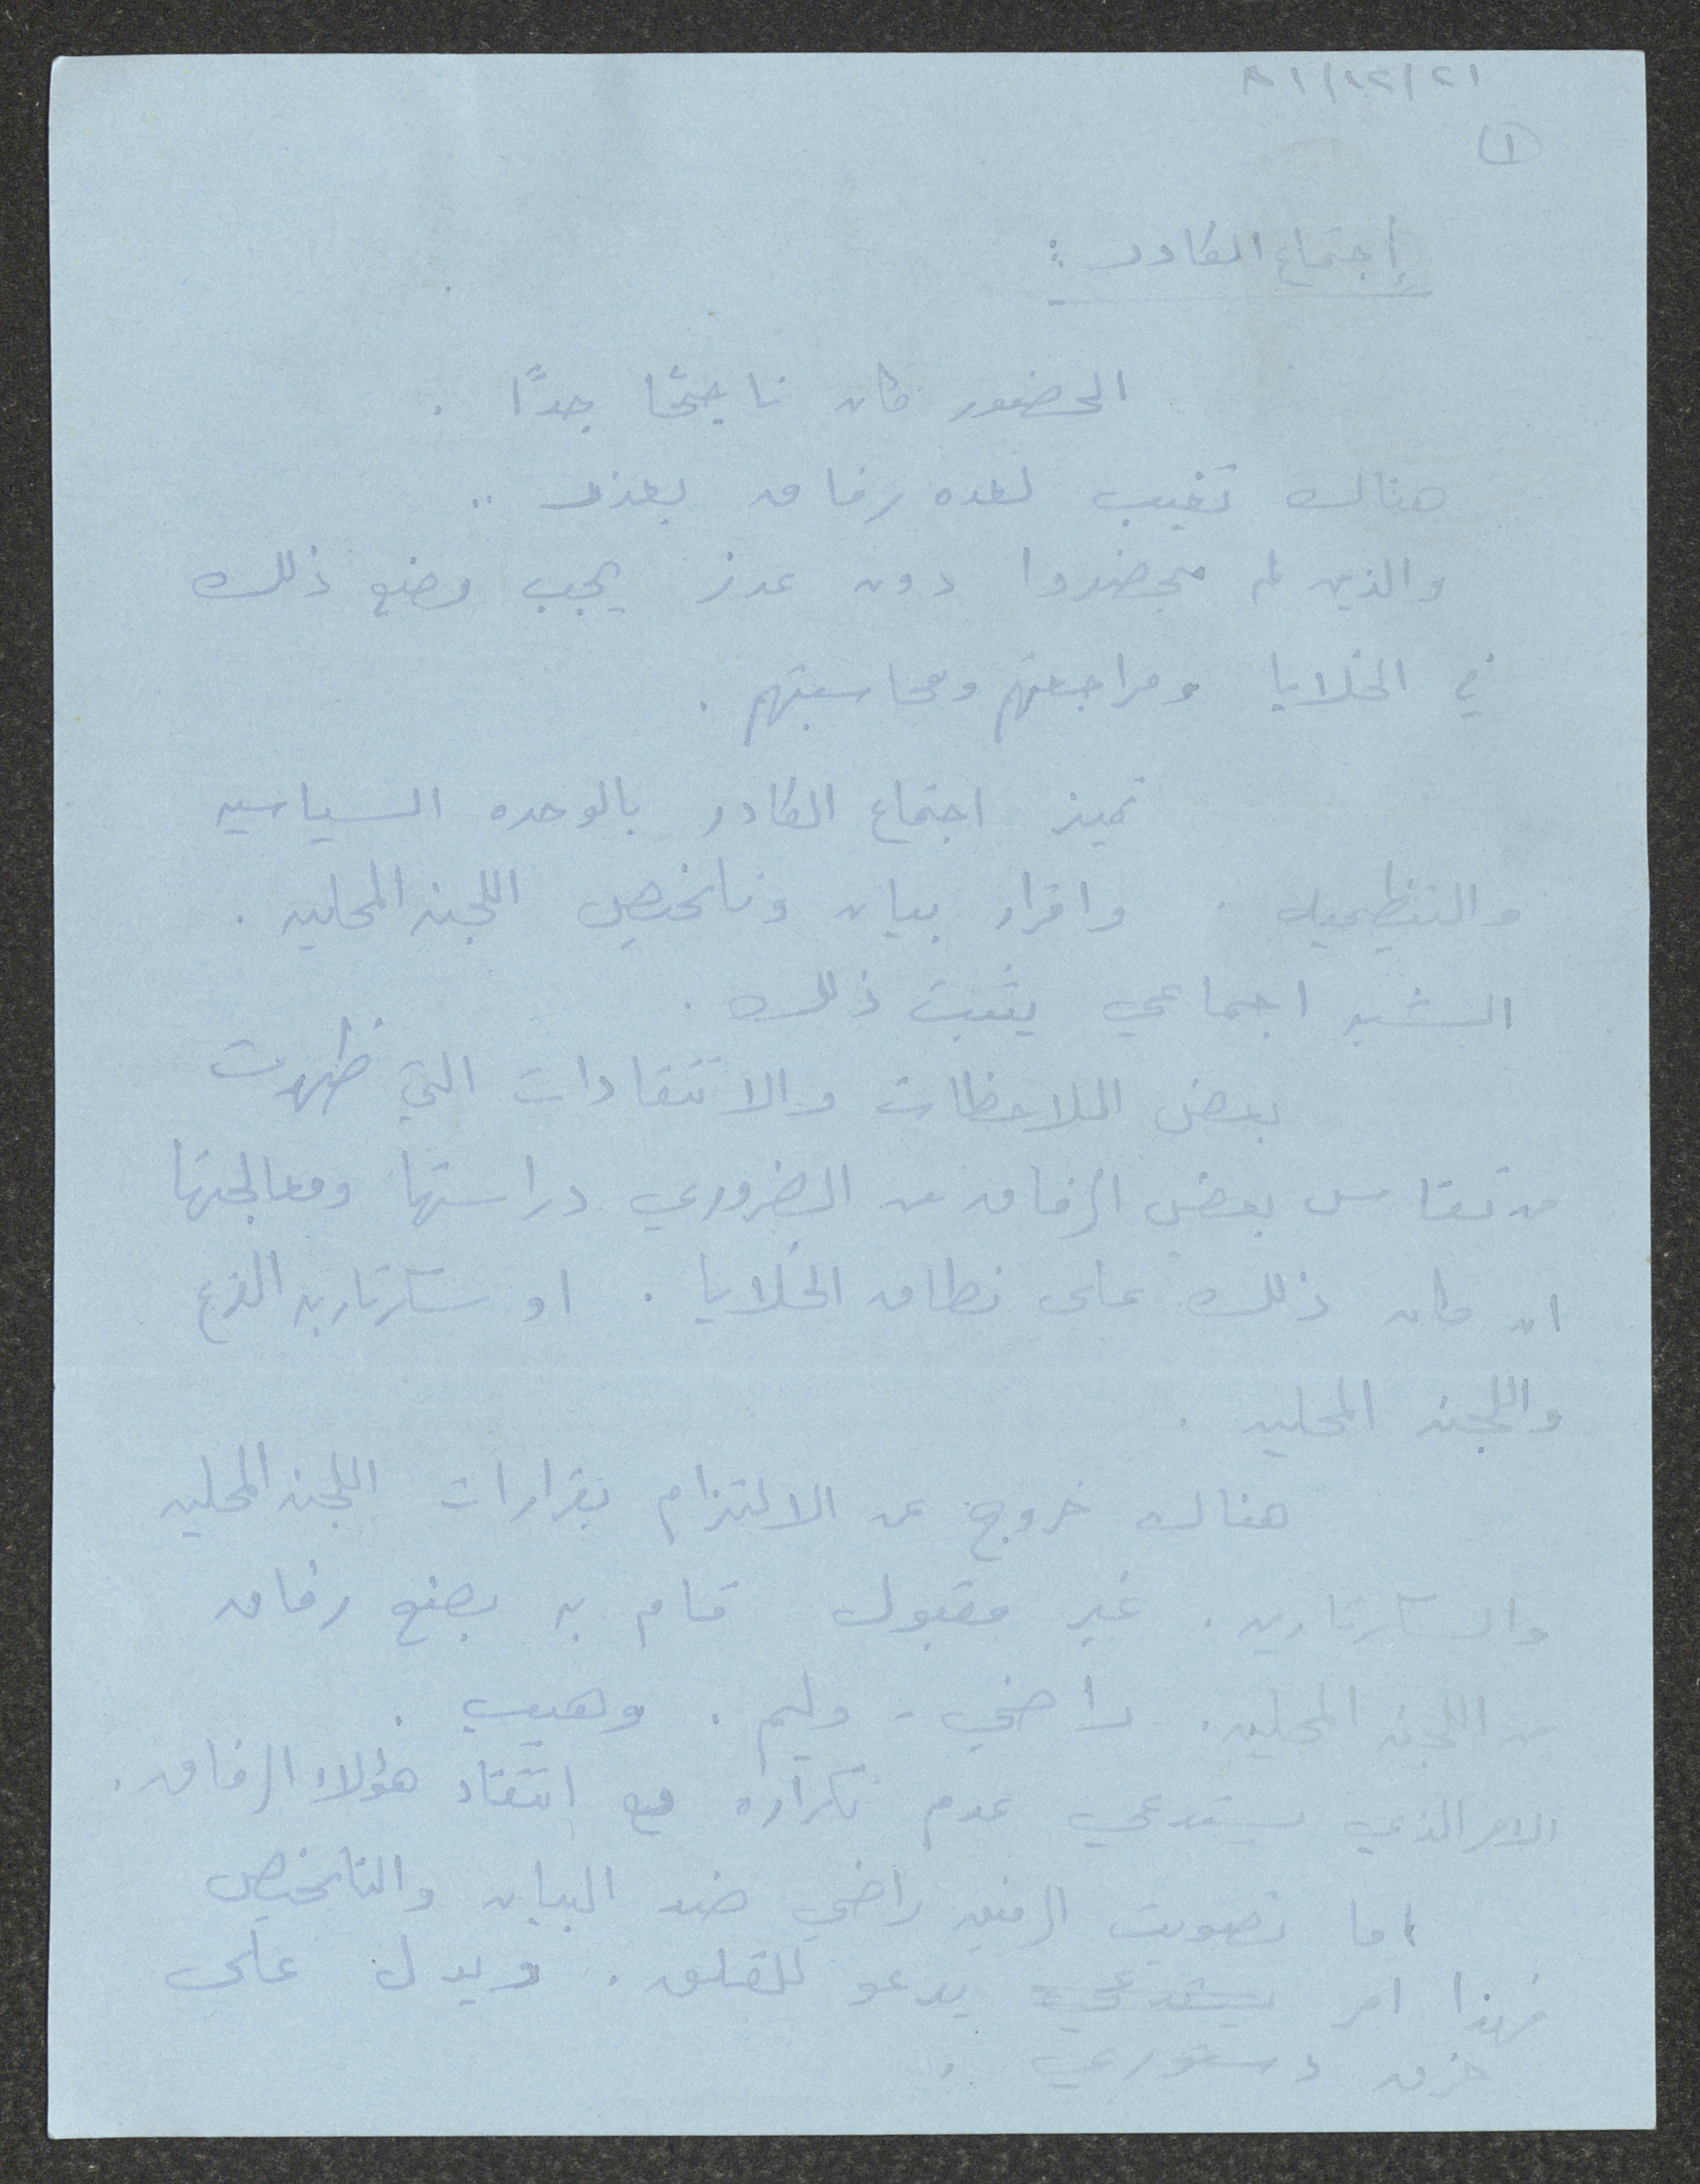 ٢١/١٢/٨١
١
إجتماع الكادر :
الحضور كان ناجحًا جدًا .
هناك تغيب لعده رفاق بعذر ..
والذين لم يحضروا دون عذر يجب وضع ذلك
في الخلايا ومراجعتهم ومحاسبتهم .
تميز اجتماع الكادر بالوحده السياسيه
والتنظيميه . واقرار بيان وتلخيص اللجنه المحليه .
الشبه اجماعي يثبت ذلك .
بعض الملاحظات والانتقادات التي ظهرت
من تقاعس بعض الرفاق من الضروري دراستها ومعالجتها
ان كان ذلك على نطاق الخلايا . او سكرتاريه الفرع
واللجنه المحليه .
هناك خروج عن الالتزام بقرارات اللجنه المحليه
والسكرتاريه . غير مقبول قام به بضع رفاق
من اللجنه المحليه . راضي - وليم . وهيب .
الامر الذي يستدعي عدم تكراره مع انتقاد هؤلاء الرفاق .
اما تصويت الرفيق راضي ضد البيان والتلخيص
فهذا امر يستدعي يدعو للقلق . ويدل على
خرق دستوري .